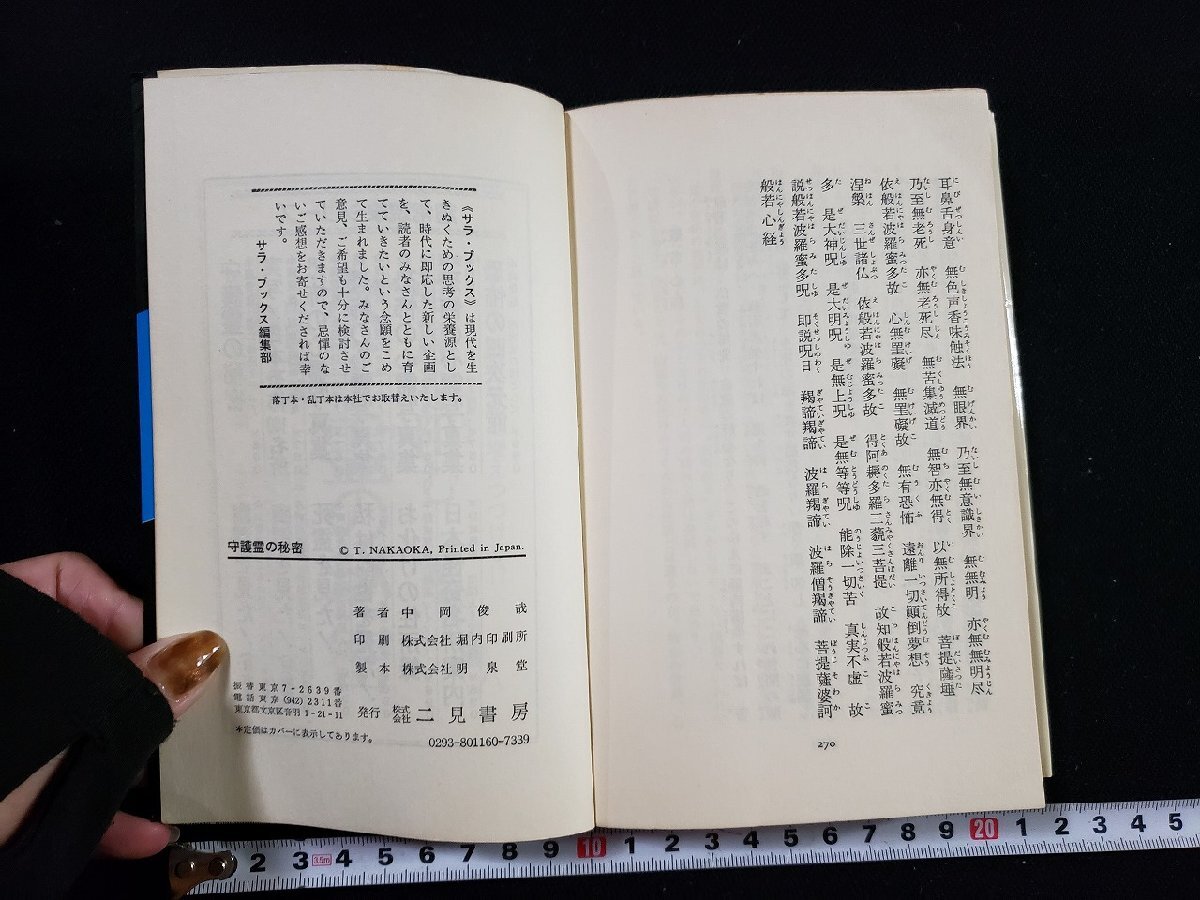 耳鼻舌身意　無色声香味触法　無眼界　乃至無意識界　無無明　亦無無明尽
乃至無老死　亦無老死尽　無苦集滅道　無智亦無得　以無所得故　菩提薩埵
依般若波羅蜜多故　心無罣礙　無罣礙故　無有恐怖　遠離一切顛倒夢想　究竟
涅槃　三世諸仏　依般若波羅蜜多故　得阿耨多羅三藐三菩提　故知般若波羅蜜
多　是大神呪　是大明呪　是無上呪　是無等等呪　能除一切苦　真実不虚　故
説般若波羅蜜多呪　即説呪曰　羯諦羯諦　波羅羯諦　波羅僧羯諦　菩提薩婆訶
般若心経
270
《サラ・ブックス》は現代を生
きぬくための思考の栄養源とし
て、時代に即応した新しい企画
を、読者のみなさんとともに育
てていきたいという念願をこめ
て生まれました。みなさんのご
意見、ご希望も十分に検討させ
ていただきますので、忌憚のな
いご感想をお寄せくだされば幸
いです。
サラ・ブックス編集部
落丁本・乱丁本は本社でお取替えいたします。
守護霊の秘密
© T. NAKAOKA, Printed in Japan.
著者　中岡俊哉
印刷　株式会社　堀内印刷所
製本　株式会社　明泉堂
発行　株式会社　二見書房
振替東京7-2639番
電話東京(942)2311番
東京都文京区音羽1-21-11
*定価はカバーに表示してあります。
0293-801160-7339
2 3 3.5m 4 5 6 7 8 9 10 1 2 3 4 5 6 7 8 9 20 1 2 3 4 5